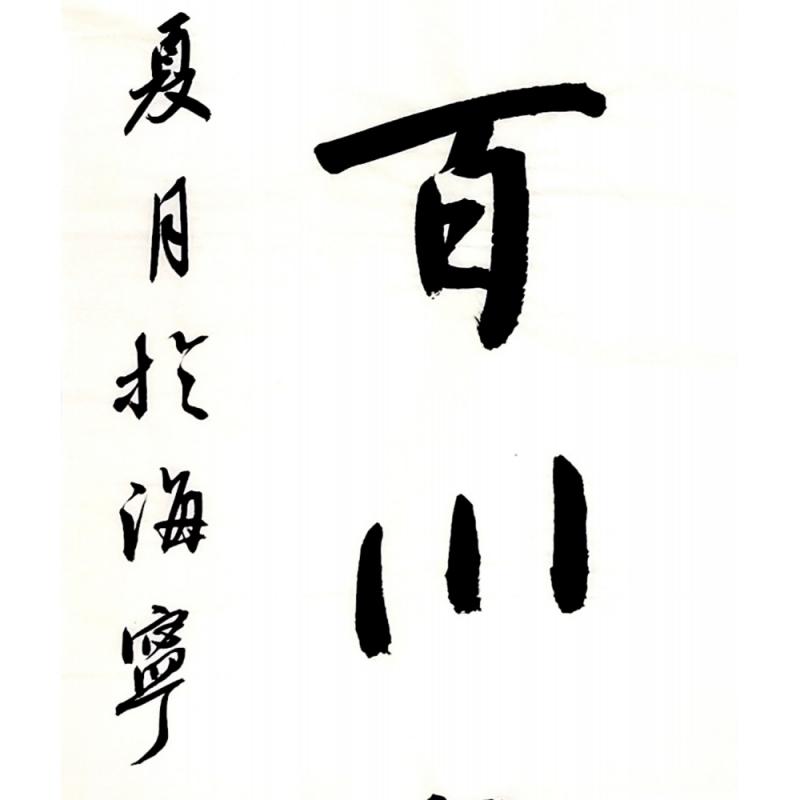 百川
夏月於海寧